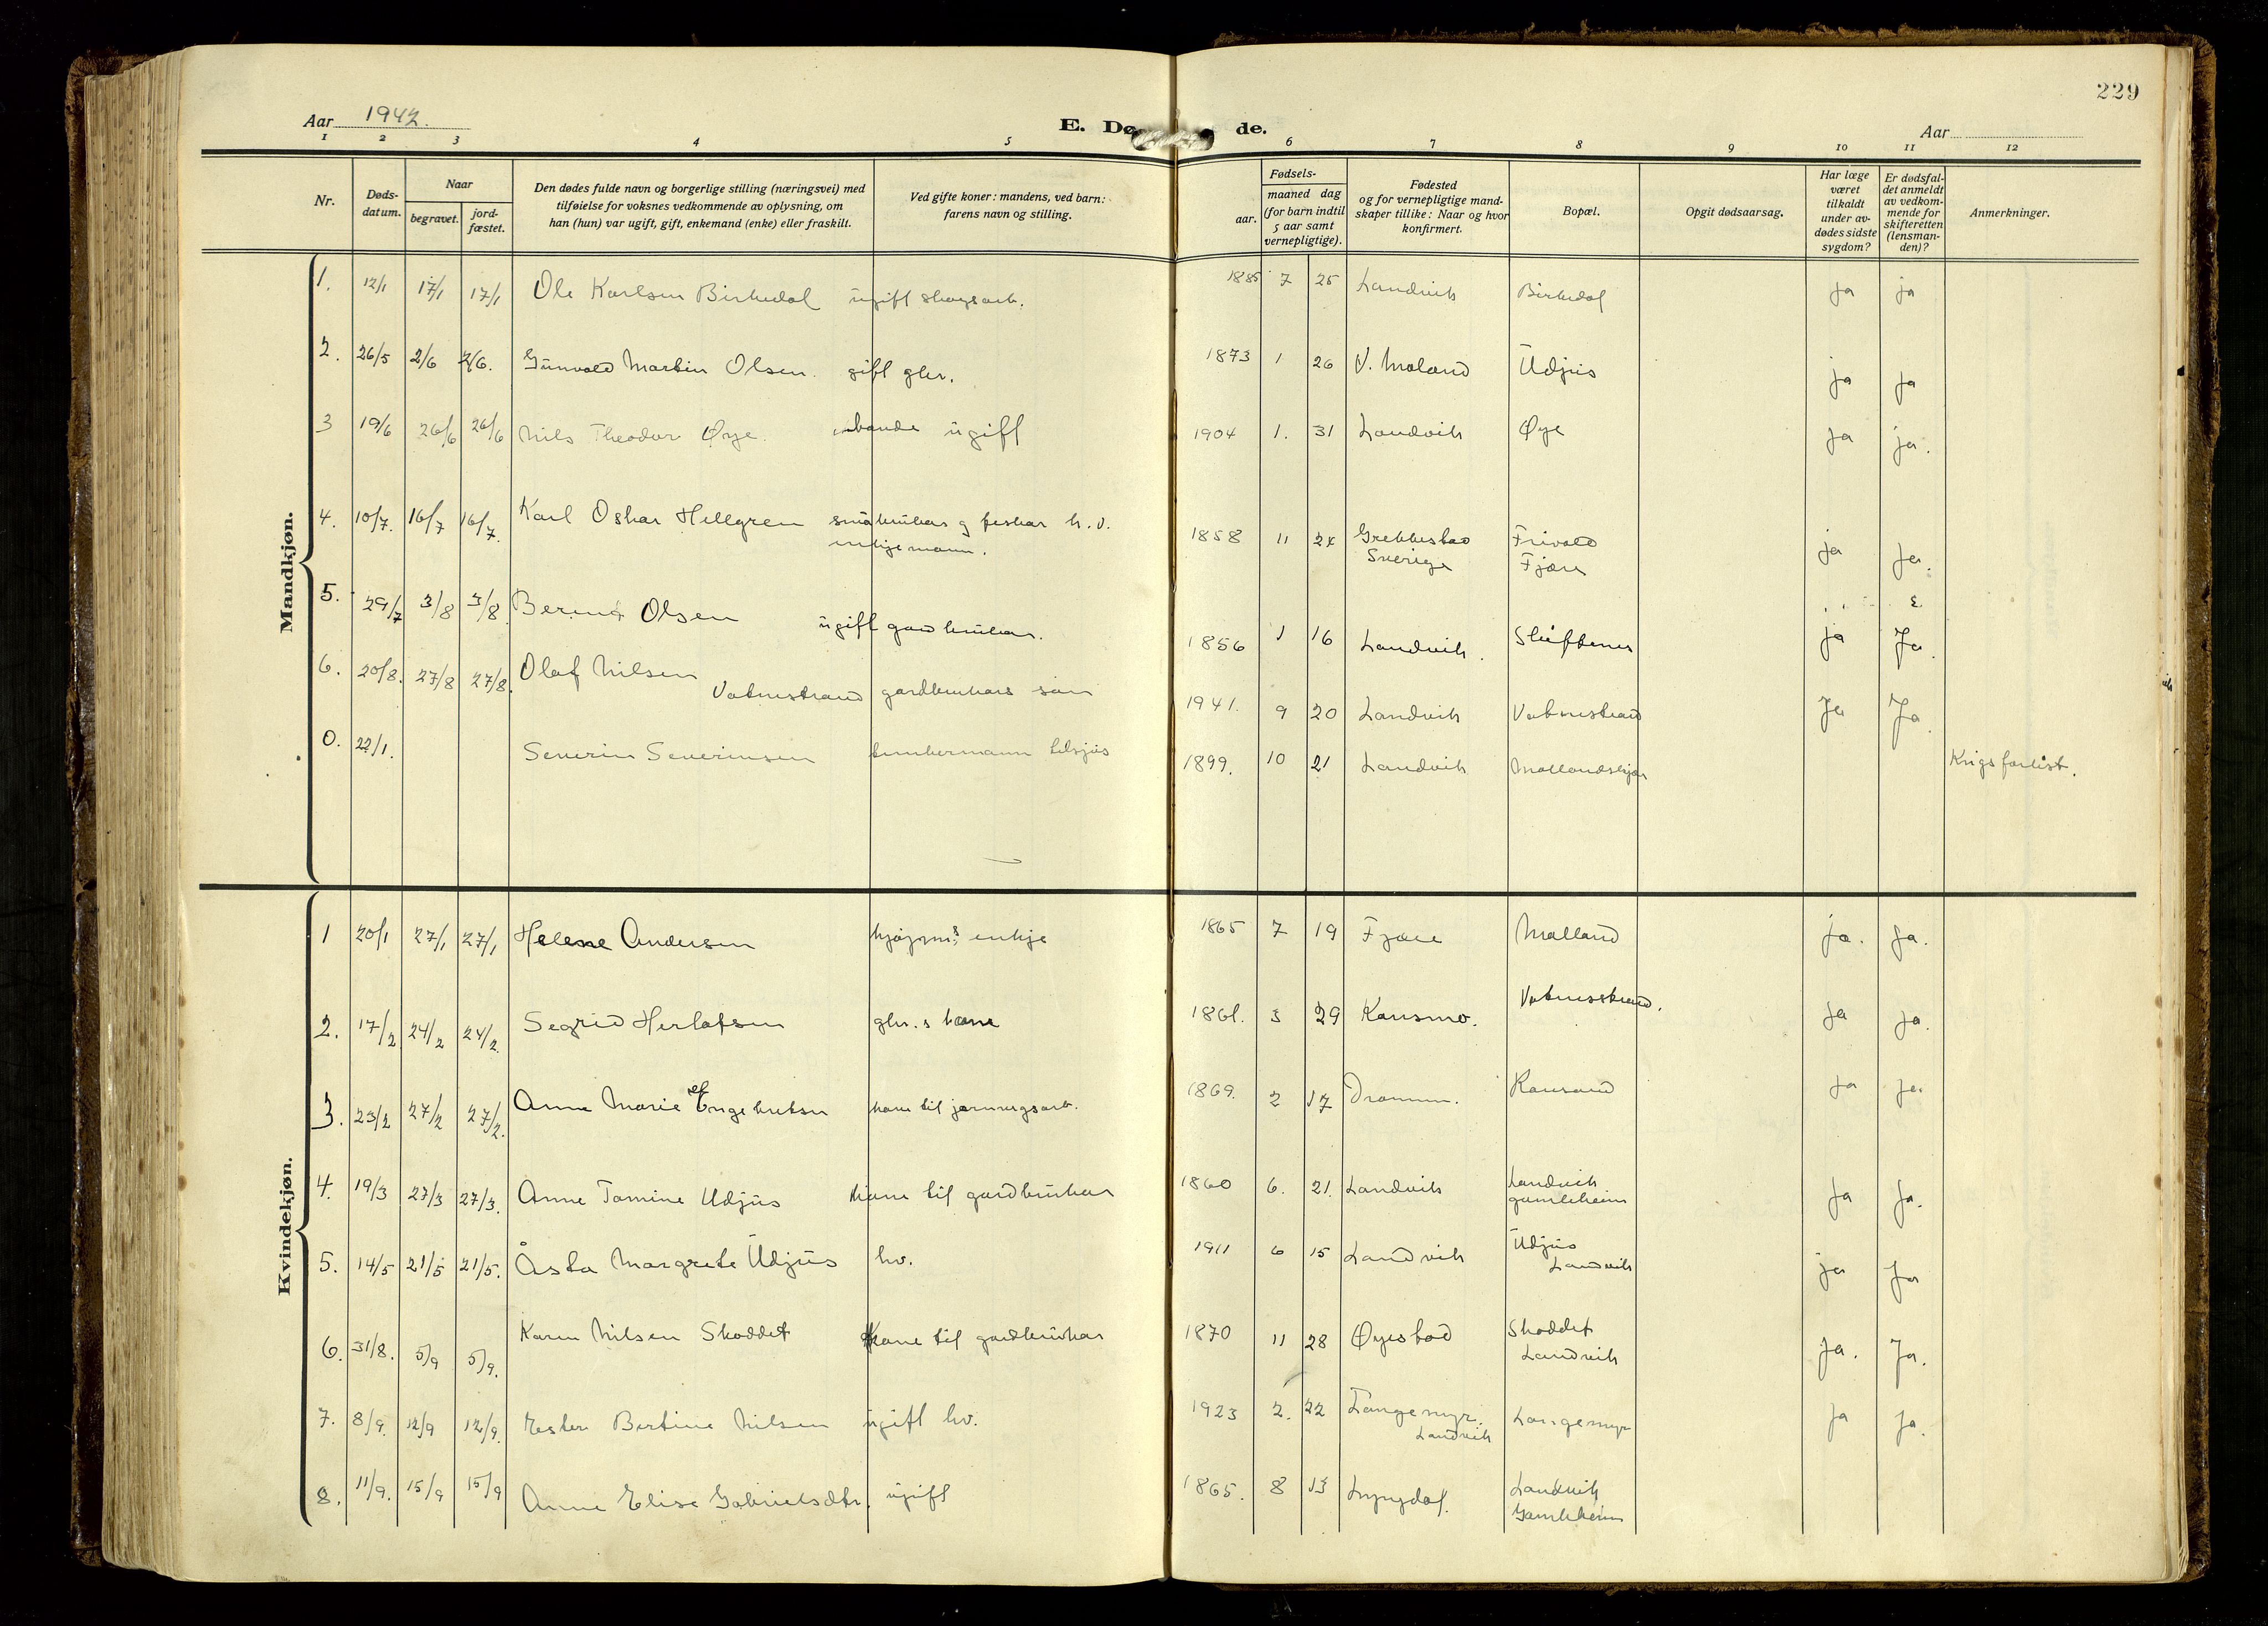 229
Aar 1942.
E. Dø de.
Aar
1 2 3 4 5 6 7 8 9 10 11 12
Nr.
Døds-datum.
Naar
begravet.
jord-fæstet.
Den dødes fulde navn og borgerlige stilling (næringsvei) med
tilføielse for voksnes vedkommende av oplysning, om
han (hun) var ugift, gift, enkemand (enke) eller fraskilt.
Ved gifte koner: mandens, ved barn:
farens navn og stilling.
Fødsels-
aar.
maaned dag
(for barn indtil
5 aar samt
vernepligtige).
Fødested
og for vernepligtige mand-
skaper tillike: Naar og hvor
konfirmert.
Bopæl.
Opgit dødsaarsag.
Har læge
været
tilkaldt
under av-
dødes sidste
sygdom?
Er dødsfal-
det anmeldt
av vedkom-
mende for
skifteretten
(lensman-
den)?
Anmerkninger.
Mandkjøn.
1. 12/1 17/1 17/1 Ole Karlsen Birkedal ugift skogsarb. 1885 7 25 Landvik Birkedal ja ja
2. 26/5 2/6 2/6. Gunvald Martin Olsen. gift gbr. 1873 1 26 V. Moland Udjus ja ja
3 19/6 26/6 26/6 Nils Theodor Øye. ugift 1904 1. 31 Landvik Øye ja ja.
4. 10/7. 16/7 16/7. Karl Oskar Hellgren småbrukar og fiskar h.v. 1858 11 24 Grebbestad Frivold ja ja.
enkjemann. Sverige Fjære
5. 29/7 3/8 3/8. Olsen ugift gardbrukar. 1856 1 16 Landvik. Sluftener ja Ja.
6. 20/8. 27/8 27/8. Olaf Nilsen
Vatnestrand gardbrukars son 1941. 9 20 Landvik Vatnestrand Ja Ja.
0. 22/1. Severin Severinsen tømbermann tilsjøs 1899. 10 21 Landvik Mollandskjær Krigsforlist.
Kvindekjøn.
1 20/1 27/1 27/1 Helene Andersen enkje 1865 7 19 Fjære Molland ja. ja.
2. 17/2 24/2 24/2. Segrid Herlofsen gbr.s kone 1861. 3 29 Kansmo. Vatnestrand. ja ja.
3. 23/2 27/2 27/2. Anna Marie Engebretsen kone til jarnvegsarb. 1869. 2 17 Drammn. Ransand ja ja.
4. 19/3 27/3 27/3. Anne Tomine Udjus kone til gardbrukar 1860 6. 21. Landvik Landvik ja ja.
gamleheim
5. 14/5 21/5 21/5. Åsta Margrete Udjus hv. 1911 6 15 Landvik Udjus ja ja
Landvik
6. 31/8. 5/9 5/9. Karen Nilsen Skoddet kone til gardbrukar 1870 11 28 Øyestad Skoddet ja. Ja.
Landvik
7. 8/9. 12/9 12/9. Ester Bertine Nilsen ugift hv. 1923 2. 22 Langemyr. Langemyr ja ja.
Landvik
8. 11/9. 15/9 15/9 Anne Elise Gabrielsdtr. ugift 1865. 8 13 Lyngdal. Landvik
Gamleheim